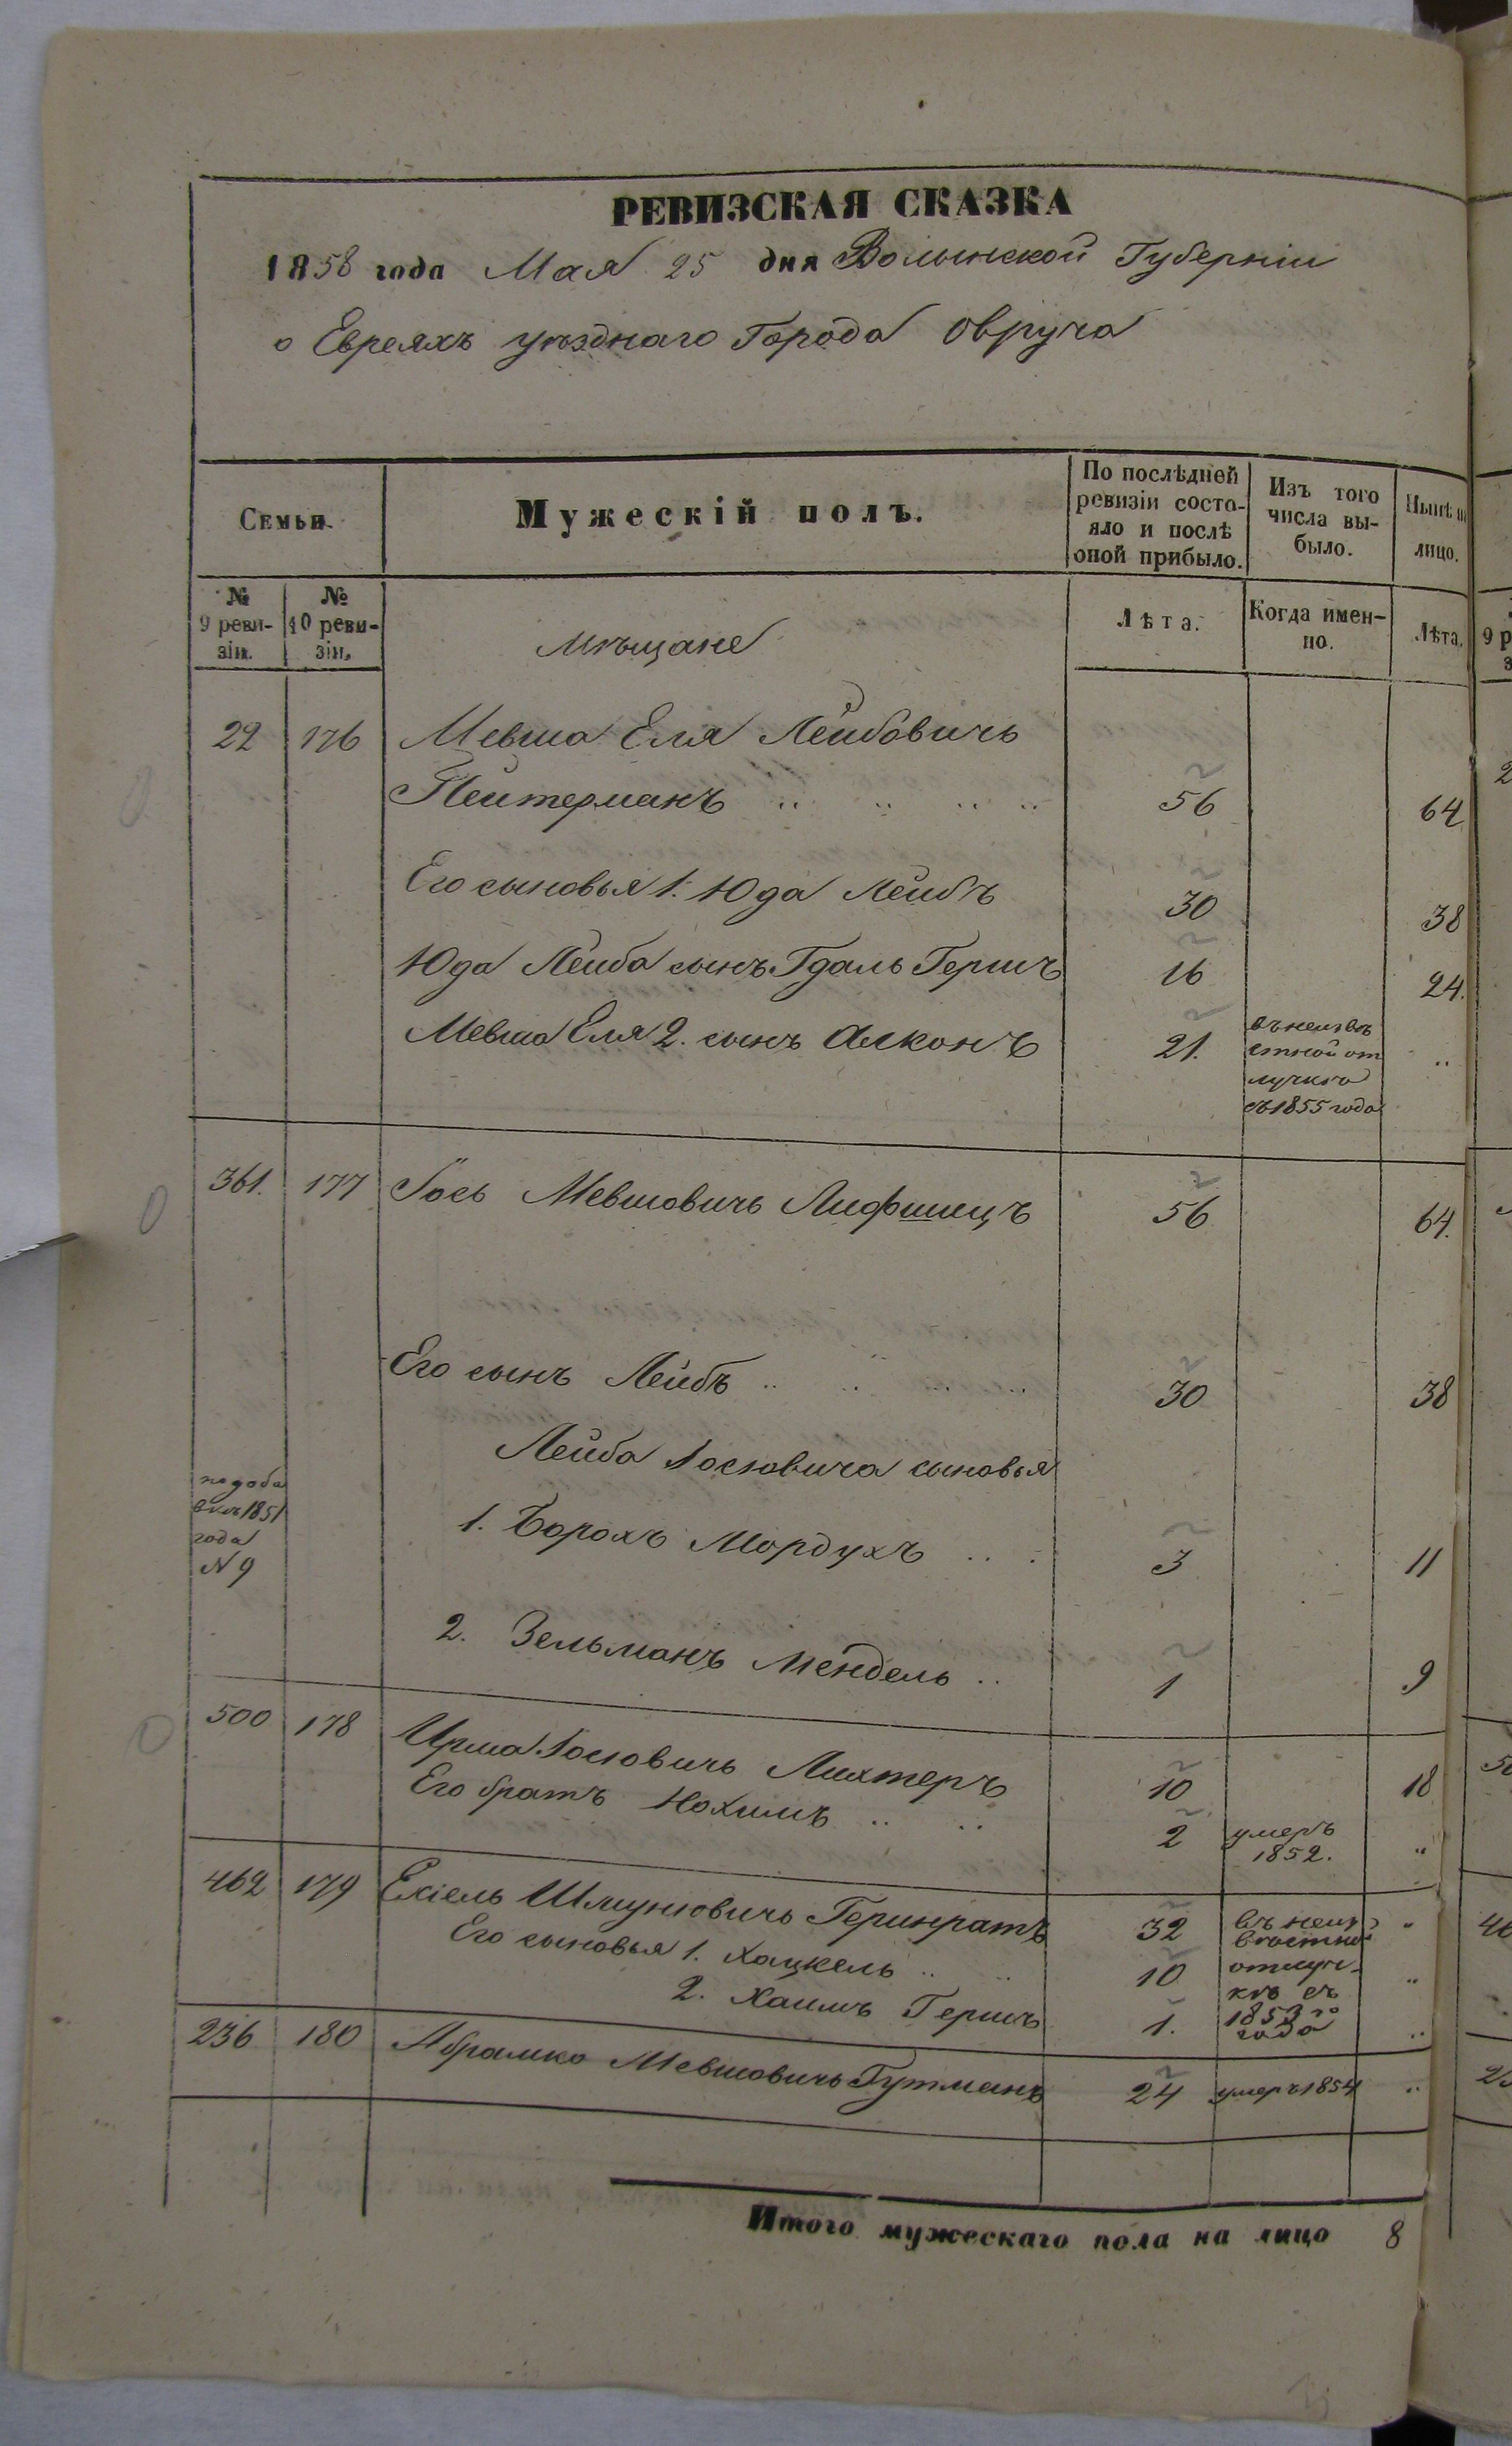 РЕВИЗСКАЯ СКАЗКА
1858 года Мая 25 дня Волынской Губерніи
о Евреяхъ уѣзднаго Города Овруча
Семьи.
Мужескій полъ.
По послѣдней ревизіи состояло и послѣ оной прибыло.
Изъ того числа выбыло.
Нынѣ
лицо.
№ 9 ревизіи.
№ 10 ревизіи.
Мѣщане
Лѣта.
Когда именно.
Лѣта.
22 176 Мевша Еля Лейбовичъ
Пейтерманъ 56 64
Его сыновья 1. Юда Лейбъ 30 38
Юда Лейба сынъ Гдаль Гершъ 16 24.
Мевша Еля 2. сынъ Алконъ 21. въ неизвѣстной отлучкѣ съ 1855 года
361. 177 Іось Мевшовичъ Лифшецъ 56 64.
Его сынъ Лейбъ 30 38
Лейба Іосіовича сыновья
1. Борохъ Мордухъ 3 11
года
N 9
2. Зельманъ Мендель 1 9
500 178 Ирма Іосіовичъ Лихтеръ 10 18
Его братъ Нохимъ 2 умеръ 1852.
462 179 Ехіель Шмуніовичъ 32 въ неизвѣстной
Его сыновья 1. Хацкель 10 отлучкѣ съ
2. Хаимъ Гершъ 1. 1853 го года
236 180 Абрамко Мевшовичъ Гутманъ 24 умеръ 1854
Итого мужескаго пола на лицо 8